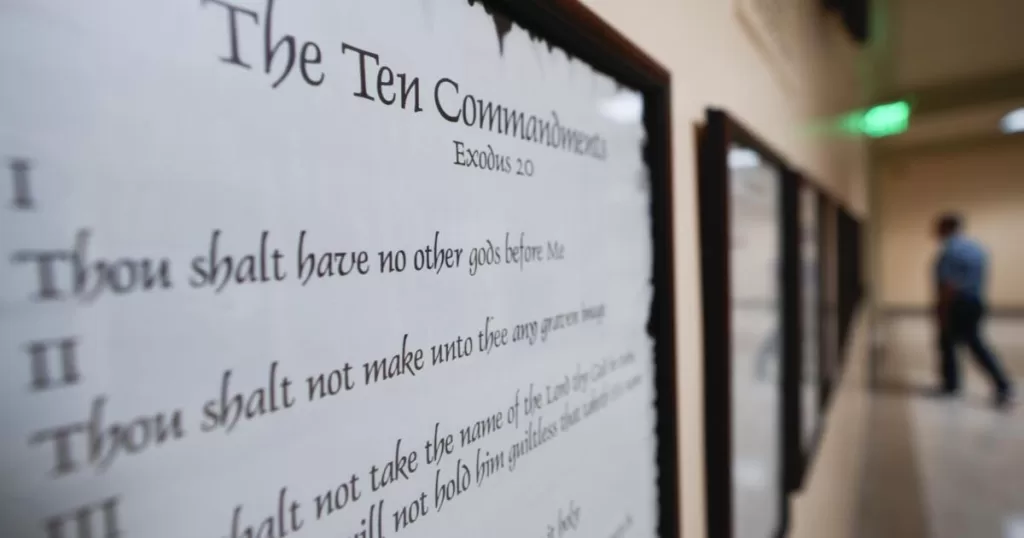 The Ten Commandments
Exodus 20
I
Thou shalt have no other gods before Me
II
Thou shalt not make unto thee any graven image
III
shalt not take the name of the Lord thy God in
will not hold him guiltless that
holy